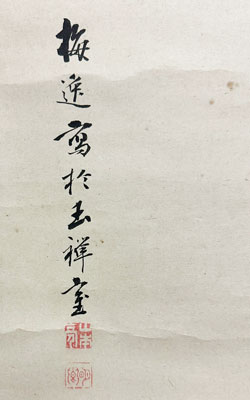 梅逸寫於玉禅室